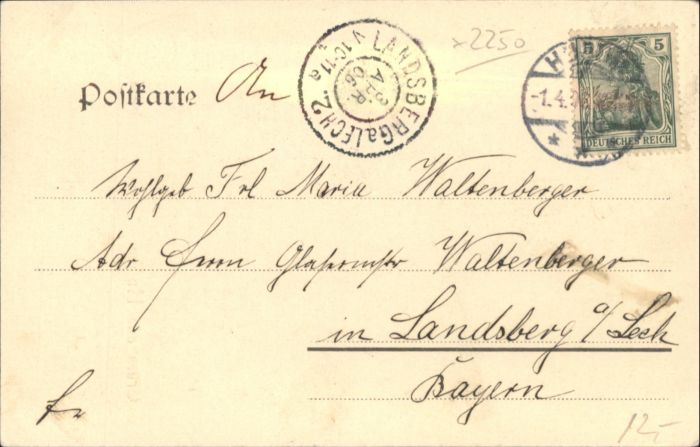 x2250
5 5
DEUTSCHES REICH
-1.4.
LANDSBERG a/LECH 2.
V 10-11 a
3
APR.
06
Postkarte An
Wohlgeb Frl Maria Waltenberger
Adr Herrn Glasermstr Waltenberger
in Landsberg a/Lech
Bayern
12,-